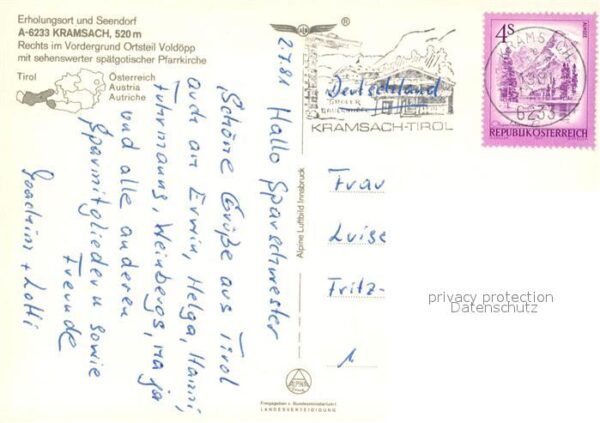 Erholungsort und Seendorf
A-6233 KRAMSACH, 520 m
Rechts im Vordergrund Ortsteil Voldöpp
mit sehenswerter spätgotischer Pfarrkirche
Tirol
Österreich
Austria
Autriche
2.7.81 Hallo Sparschwester
Schöne Grüße aus Tirol
auch an Erwin, Helga, Hanni,
Fuhrmanns, Weinbergs,
und alle anderen
Sparmitgliedern sowie
Freunde
Joachim + Lotti
Alpine Luftbild Innsbruck
ALPINE
Freigegeben v. Bundesministerium f.
LANDESVERTEIDIGUNG
Deutschland
KRAMSACH-TIROL
KRAMSACH
6233
4S
REPUBLIK ÖSTERREICH
Frau
Luise
Fritz-
1
privacy protection
Datenschutz